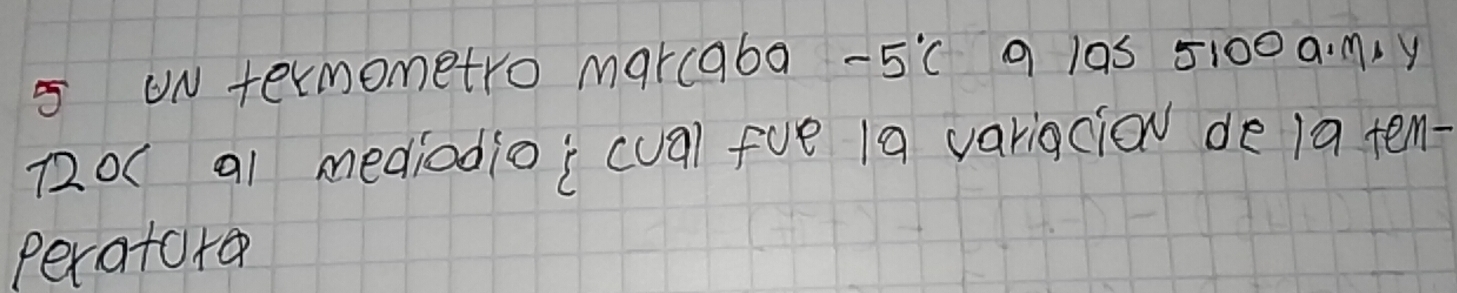 5 UN termometro marcaba -5°C a las 5:00 a.m, y
12°C al mediodio ¿ cual fue la variacion de la tem-
peratura